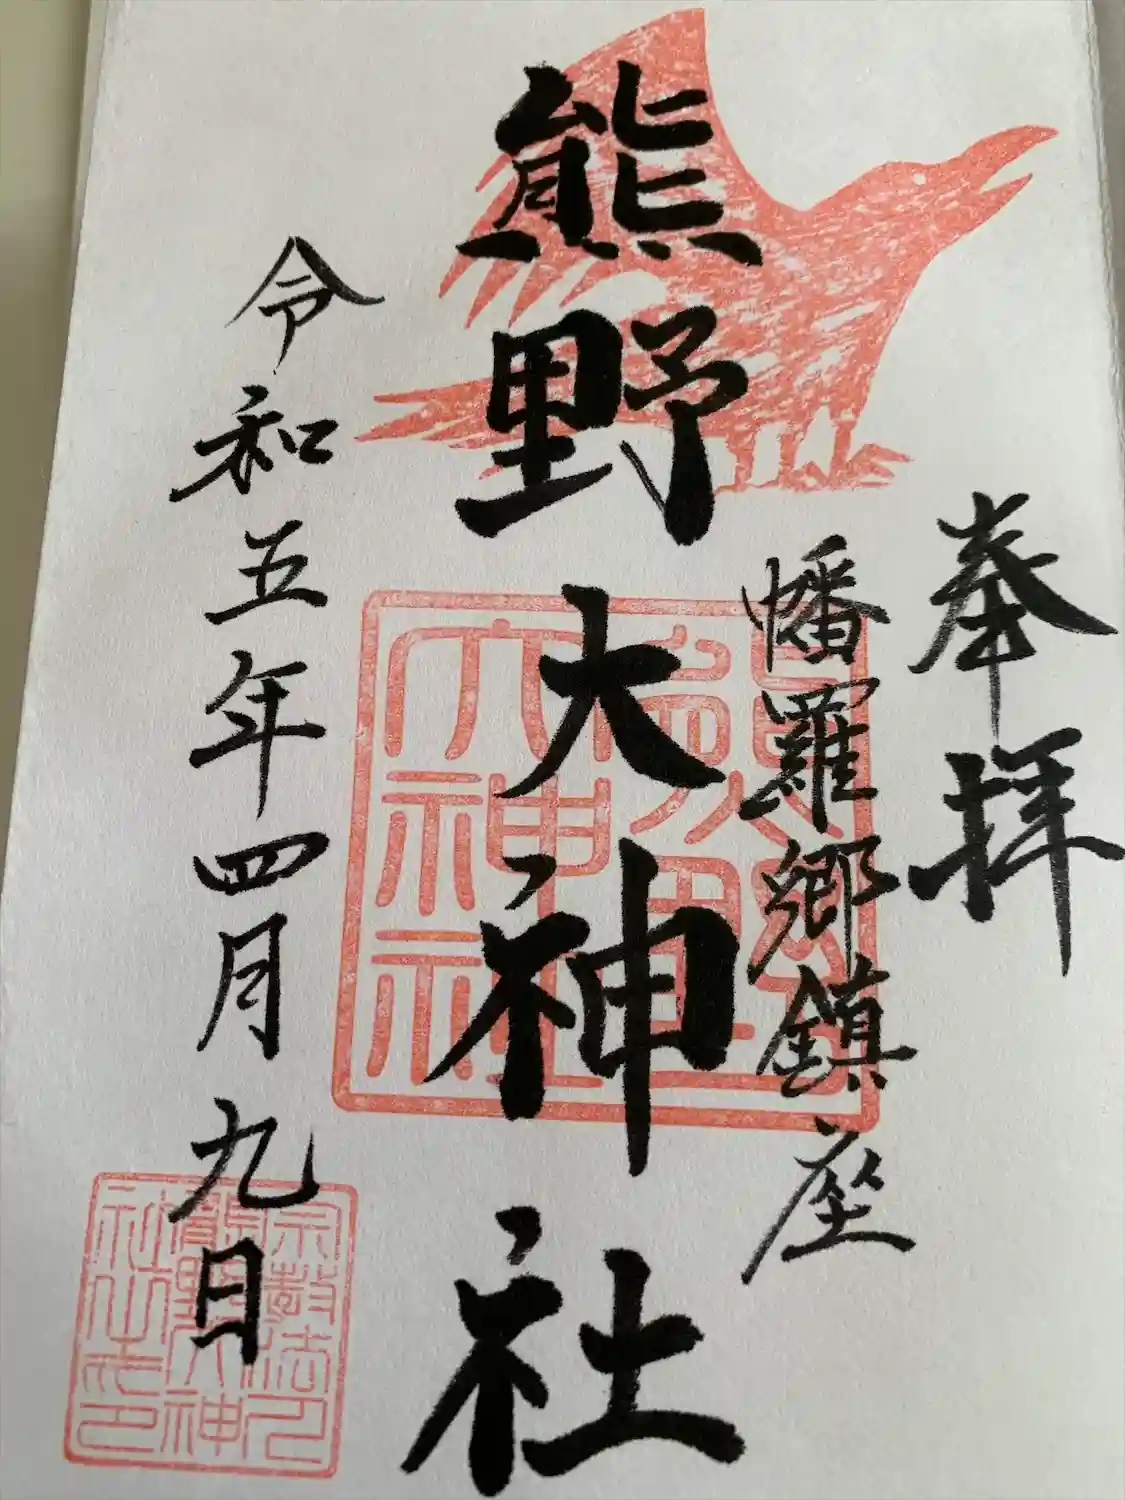 奉拝
幡羅郷鎮座
熊野大神社
熊野
大神社
令和五年四月九日
宗教法人
熊野大神
社之印